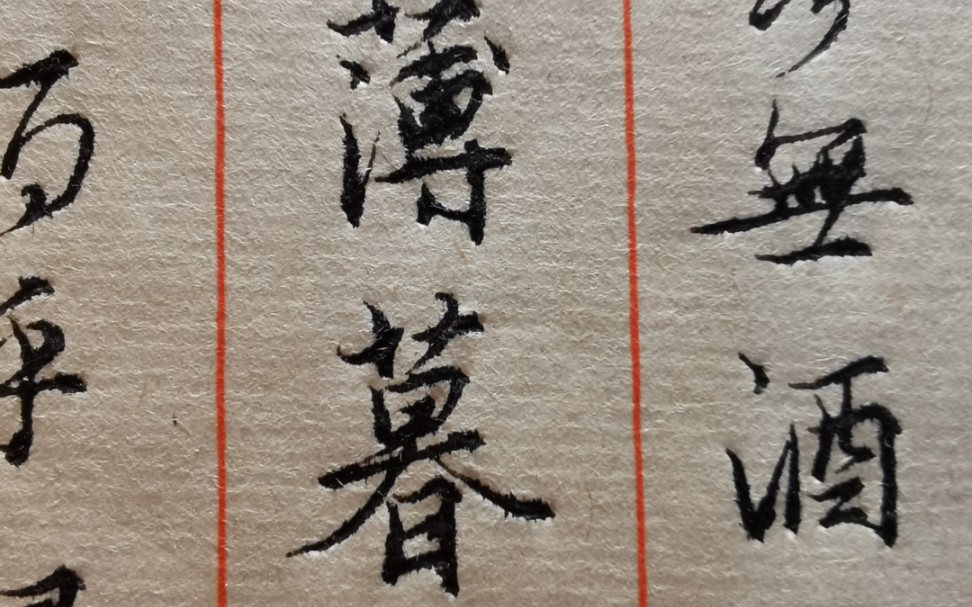 無酒
薄暮
乎